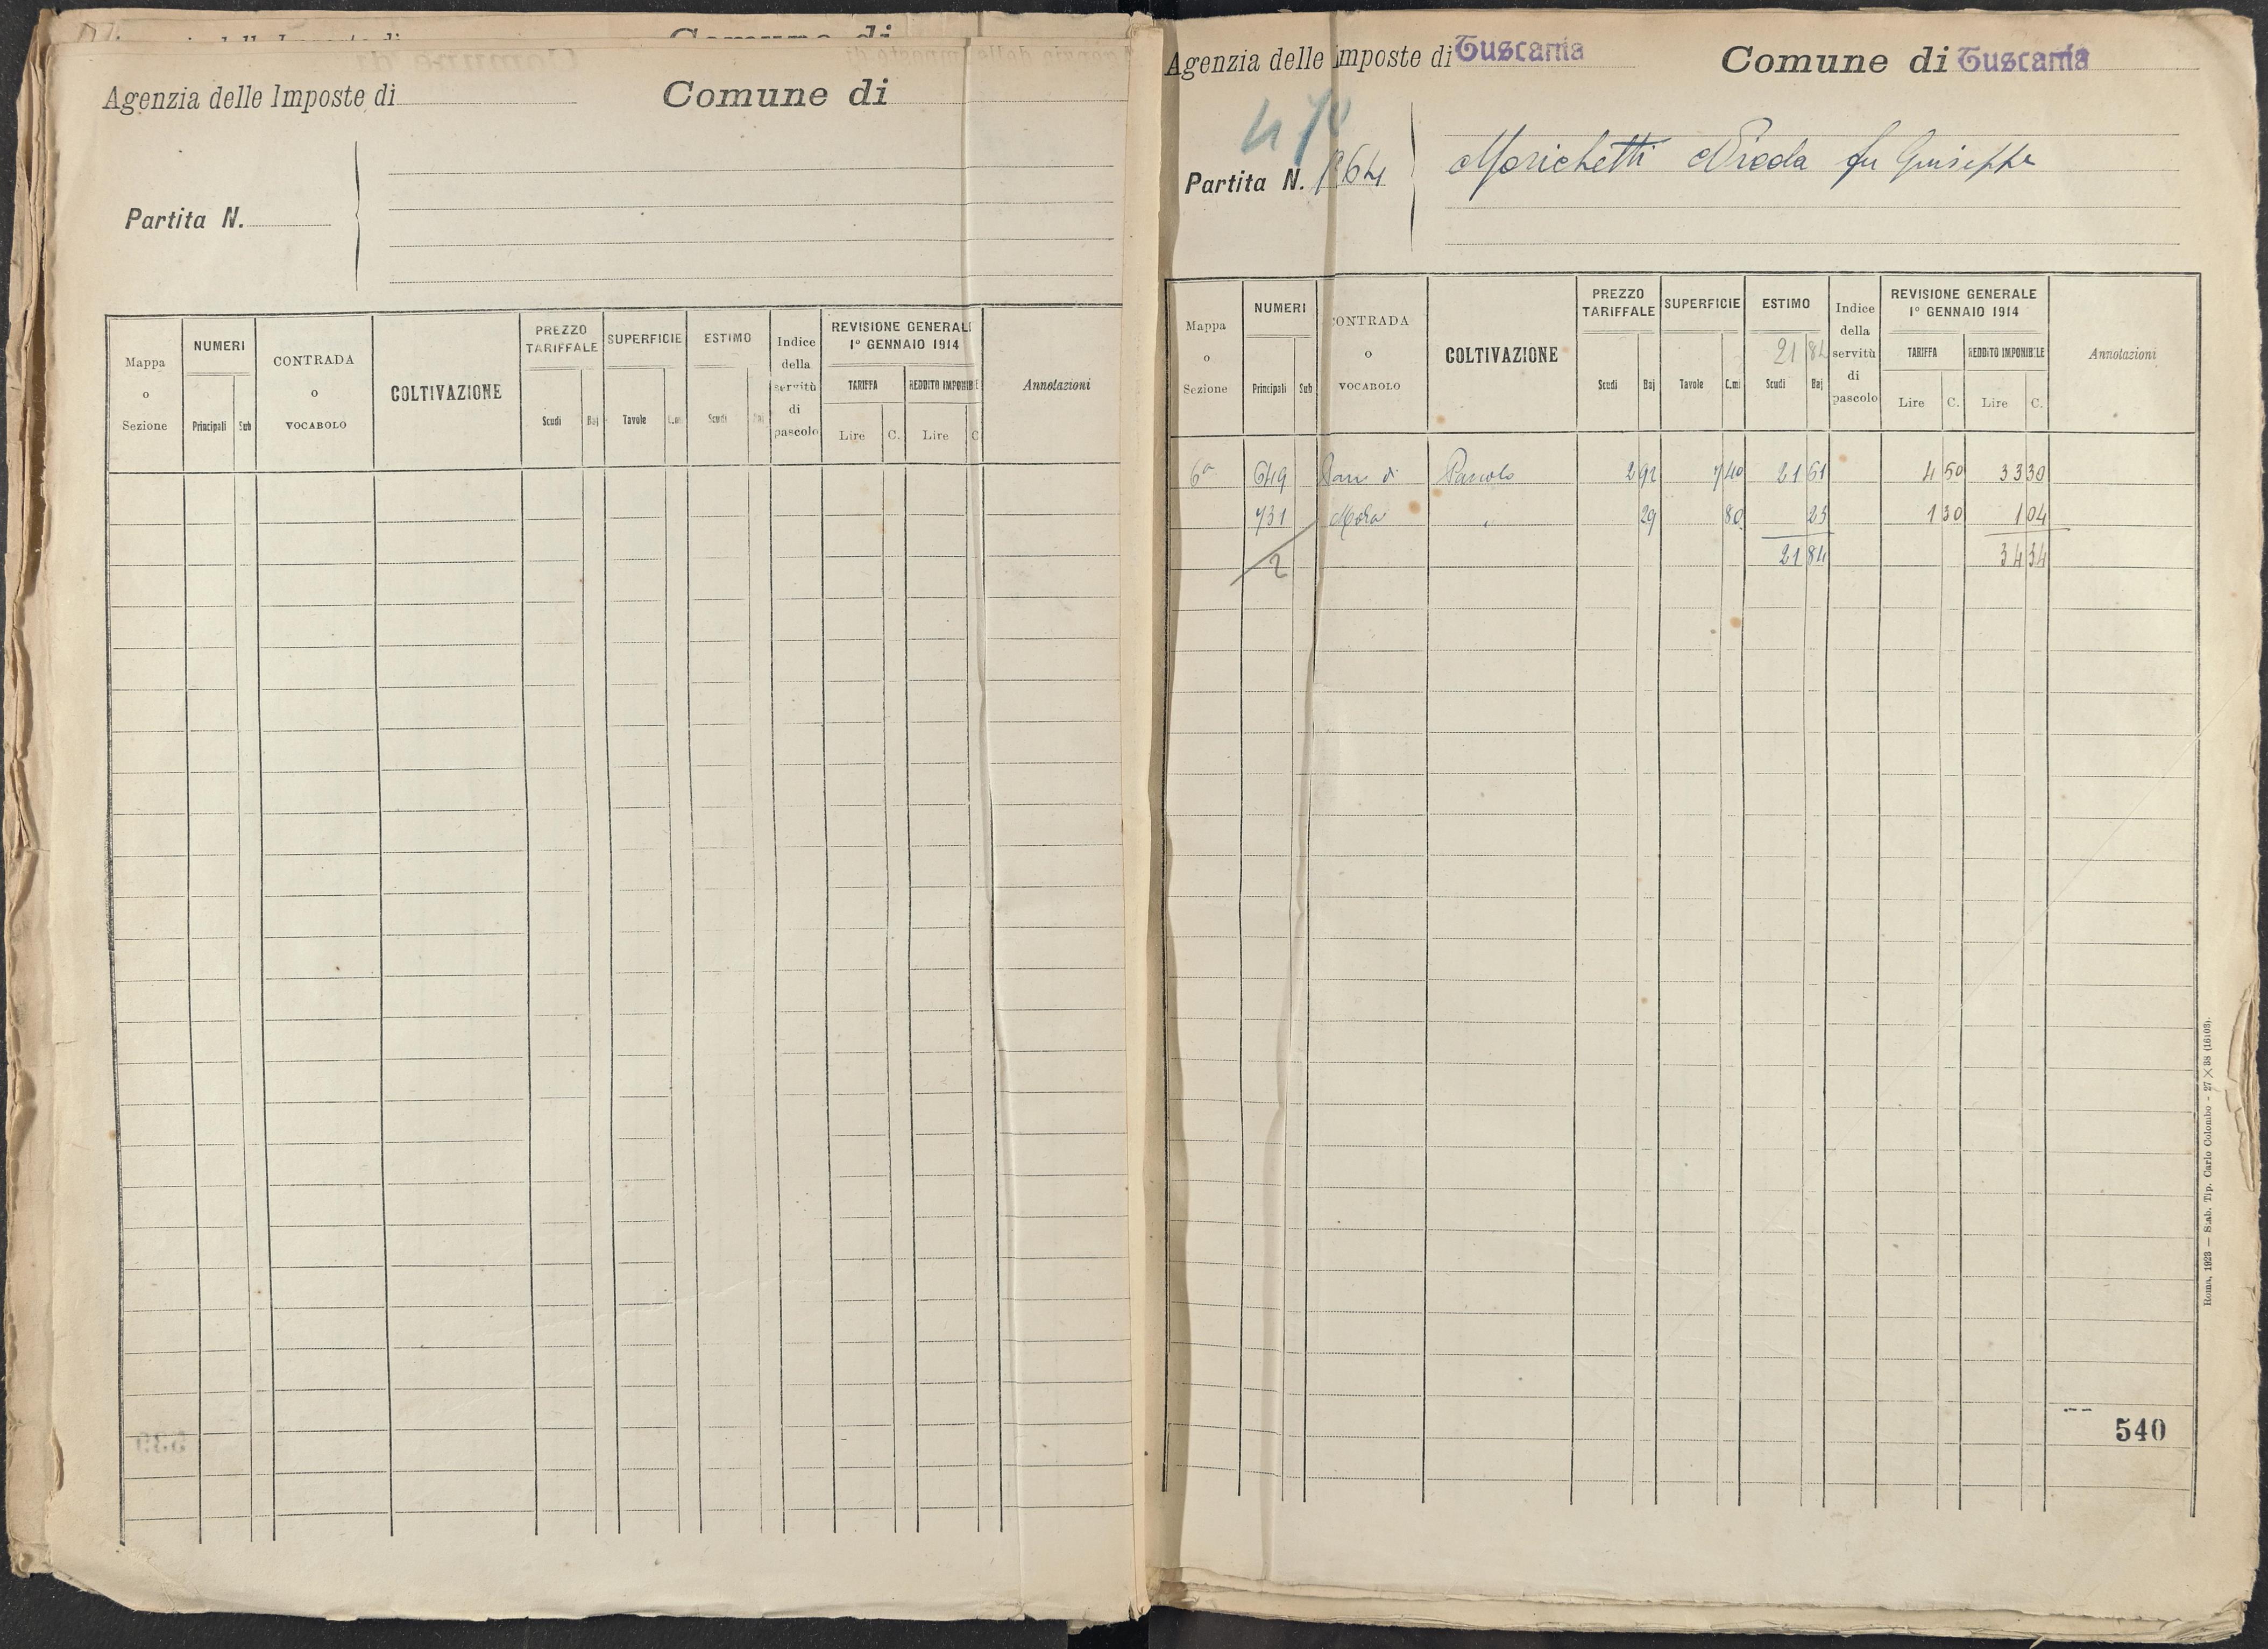 Agenzia delle Imposte di
Comune di
Partita N.
Mappa o Sezione
NUMERI
Principali
Sub
CONTRADA o VOCABOLO
COLTIVAZIONE
PREZZO TARIFFALE
Scudi
Baj
SUPERFICIE
Tavole
C.mi
ESTIMO
Scudi
Baj
Indice della servitù di pascolo
REVISIONE GENERALE
1° GENNAIO 1914
TARIFFA
REDDITO IMPONIBILE
Lire C. Lire C
Annotazioni
Agenzia delle Imposte di Tuscania
Comune di Tuscania
Partita N.
Morichetti fu Giuseppe
Mappa o Sezione
NUMERI
Principali
Sub
CONTRADA o VOCABOLO
COLTIVAZIONE
PREZZO TARIFFALE
Scudi
Baj
SUPERFICIE
Tavole
C.mi
ESTIMO
21 84
Scudi
Baj
Indice della servitù di pascolo
REVISIONE GENERALE
1° GENNAIO 1914
TARIFFA
REDDITO IMPONIBILE
Lire C. Lire C.
Annotazioni
6a 649 di Pascolo 2 92 7 40 21 61 4 50 33 30
731 29 80 23 1 30 1 04
2 21 84 34 34
540
Roma, 1923 — Stab. Tip. Carlo Colombo - 27 × 38 (16103).